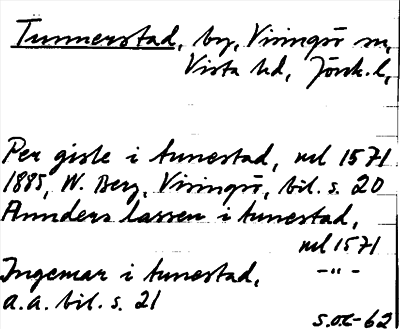 Tunnerstad, by, Visingsö sn,
Vista hd, Jönk.l,
Per gisle i tunestad, nél 1571
1885, W. Berg, Visingsö, bil. s. 20
Annders lassen i tunestad,
nél 1571
Ingemar i tunestad, -"-
a.a. bil. s. 21
s.ol-62